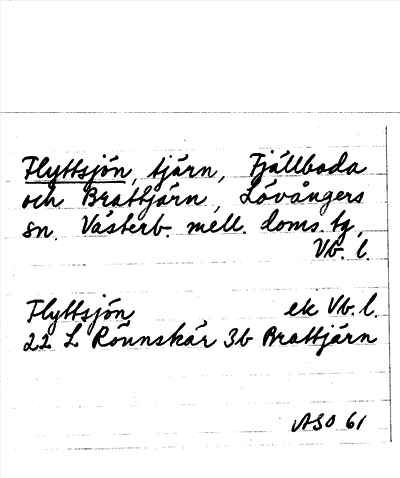 Flyttsjön, tjärn, Fjällboda
och Brattjärn, Lövångers
sn. Västerb. mell. doms. tg,
Vb. l.
Flyttsjön ek Vb. l.
22 L Rönnskär 3b Brattjärn
ASO 61